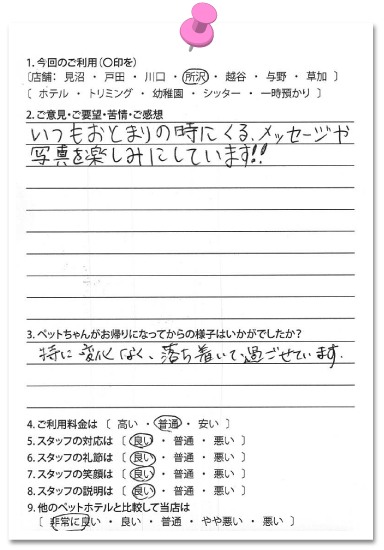 1. 今回のご利用(〇印を)
〔店舗： 見沼 ・ 戸田 ・ 川口 ・ 所沢 ・ 越谷 ・ 与野 ・ 草加 〕
〔 ホテル ・ トリミング ・ 幼稚園 ・ シッター ・ 一時預かり 〕
2. ご意見・ご要望・苦情・ご感想
いつもおとまりの時にくる、メッセージや
写真を楽しみにしています!!
3. ペットちゃんがお帰りになってからの様子はいかがでしたか？
特に変化なく、落ち着いて過ごせています.
4. ご利用料金は 〔 高い ・ 普通 ・ 安い 〕
5. スタッフの対応は 〔 良い ・ 普通 ・ 悪い 〕
6. スタッフの礼節は 〔 良い ・ 普通 ・ 悪い 〕
7. スタッフの笑顔は 〔 良い ・ 普通 ・ 悪い 〕
8. スタッフの説明は 〔 良い ・ 普通 ・ 悪い 〕
9. 他のペットホテルと比較して当店は
〔 非常に良い ・ 良い ・ 普通 ・ やや悪い ・ 悪い 〕